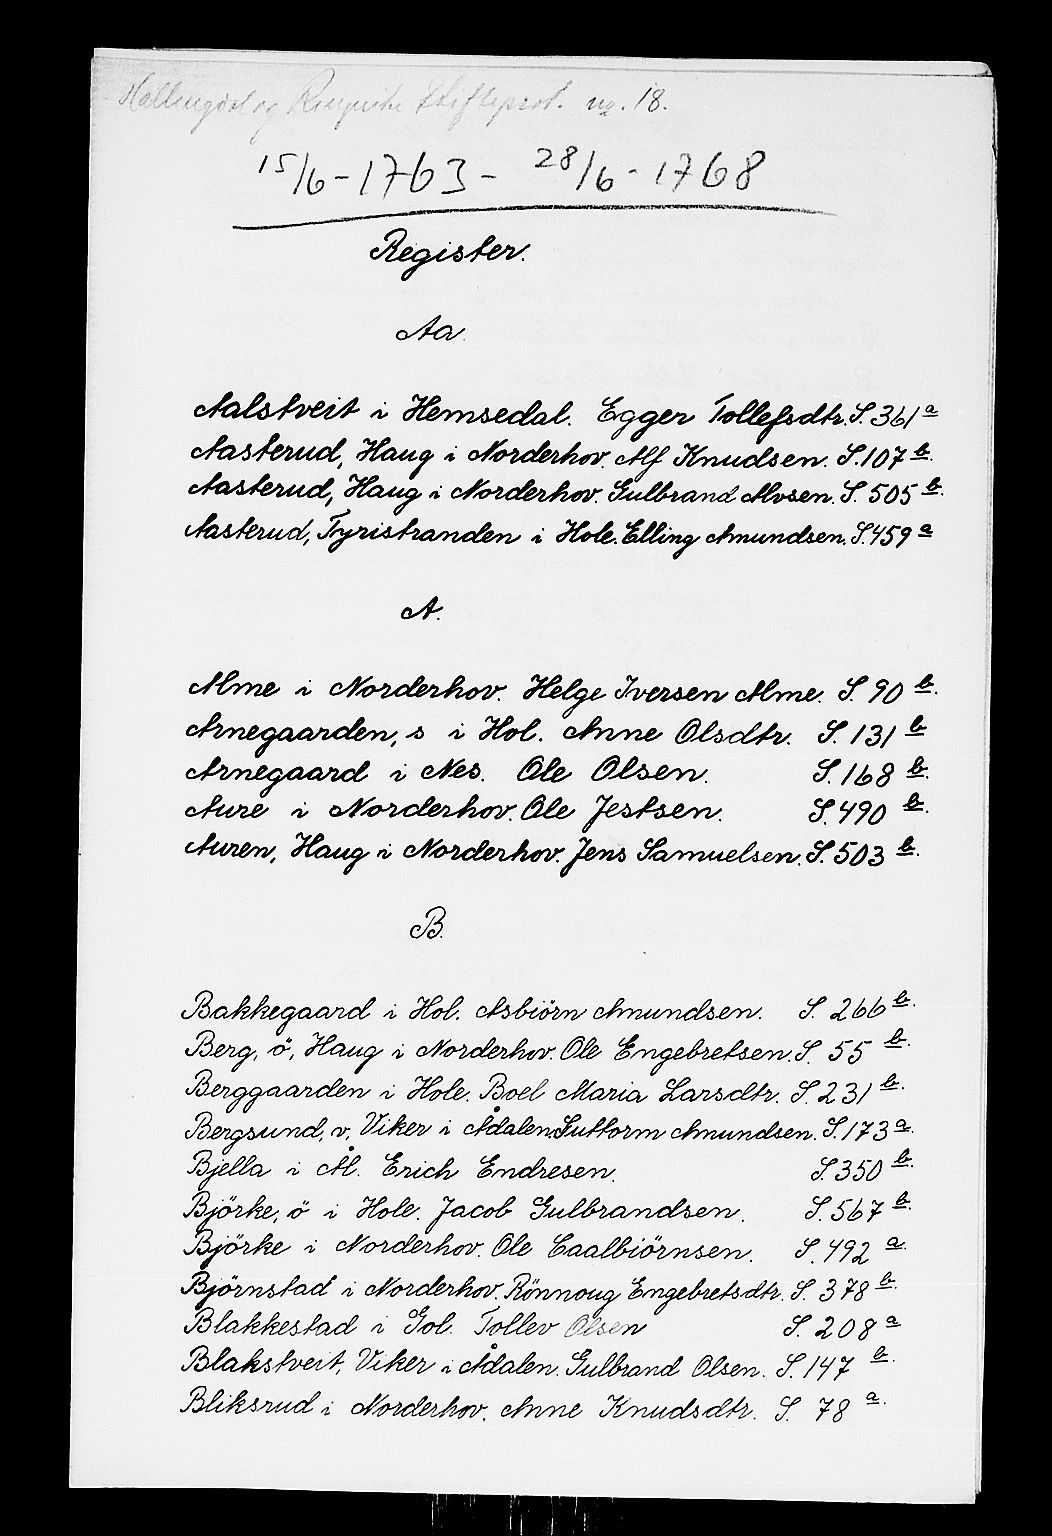 Hallingdal og Ringerike Skifteprot. no. 18.
15/6-1763 - 28/6-1768
Register.
Aa.
Aalstveit i Hemsedal. Egger Tollefsdtr. S. 361 a
Aasterud, Haug i Norderhov. Alf Knudsen. S. 107 b.
Aasterud, Haug i Norderhov. Gulbrand Alvsen. S. 505 b.
Aasterud, Tyristranden i Hole. Elling Amundsen. S. 459 a
A.
Alme i Norderhov. Helge Iversen Alme. S. 90 b.
Arnegaarden, s i Hol. Anne Olsdtr. S. 131 b
Arnegaard i Nes. Ole Olsen. S. 168 b.
Aure i Norderhov. Ole Jestsen. S. 490 b.
Auren, Haug i Norderhov. Jens Samuelsen. S. 503 b.
B.
Bakkegaard i Hol. Asbiörn Amundsen. S. 266 b.
Berg, ö, Haug i Norderhov. Ole Engebretsen. S. 55 b.
Berggaarden i Hole. Boel Maria Larsdtr. S. 231 b.
Bergsund, v, Viker i Ådalen. Guttorm Amundsen. S. 173 a.
Bjella i Ål. Erich Endresen. S. 350 b.
Björke, ö i Hole. Jacob Gulbrandsen. S. 567 b.
Björke i Norderhov. Ole Caalbiörnsen. S. 492 a.
Björnstad i Norderhov. Rönnoug Engebretsdtr. S. 378 b.
Blakkestad i Gol. Tollev Olsen S. 208 a
Blakstveit, Viker i Ådalen. Gulbrand Olsen. S. 147 b.
Bliksrud i Norderhov. Anne Knudsdtr. S. 78 a.